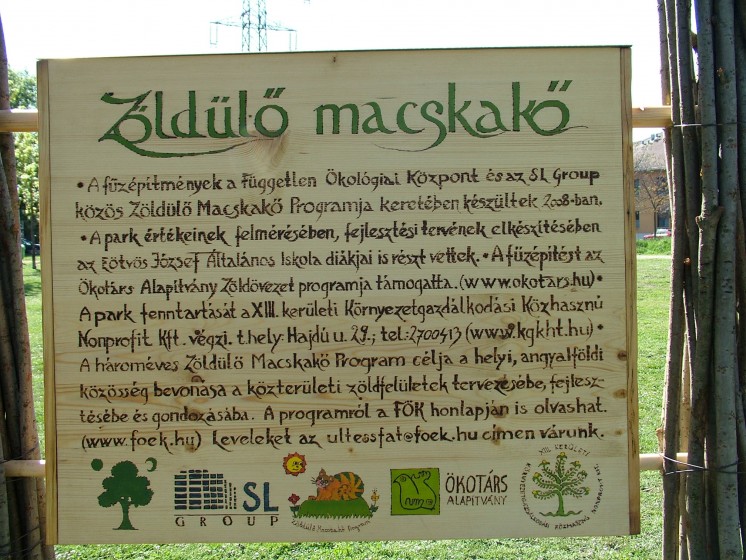 Zöldülő macskakő
• A fűzépítmények a Független Ökológiai Központ és az SL Group
közös Zöldülő Macskakő Programja keretében készültek 2008-ban.
• A park értékeinek felmérésében, fejlesztési tervének elkészítésében
az Eötvös József Általános Iskola diákjai is részt vettek. • A fűzépítést az
Ökotárs Alapítvány Zöldövezet programja támogatta. (www.okotars.hu) •
A park fenntartását a XIII. kerületi Környezetgazdálkodási Közhasznú
Nonprofit Kft. végzi. t.hely: Hajdú u. 29.; tel.: 2700413 (www.kgkht.hu) •
A hároméves Zöldülő Macskakő Program célja a helyi, angyalföldi
közösség bevonása a közterületi zöldfelületek tervezésébe, fejlesz-
tésébe és gondozásába. A programról a FÖK honlapján is olvashat.
(www.foek.hu) Leveleket az ultessfat@foek.hu címen várunk.
SL
GROUP
Zöldülő Macskakő Program
ÖKOTÁRS
ALAPÍTVÁNY
XIII. KERÜLETI